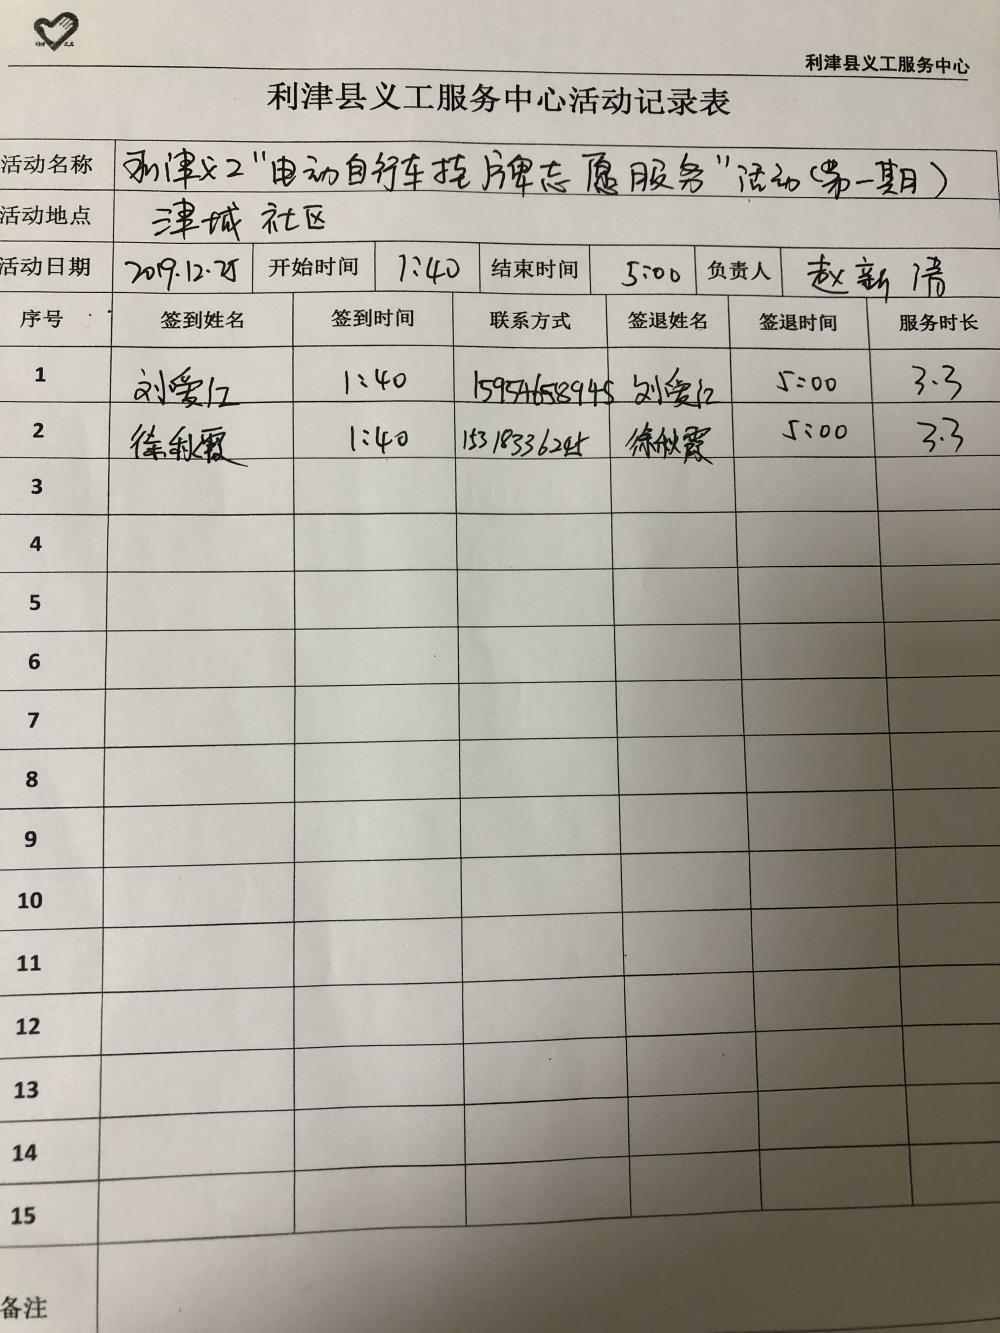 利津县义工服务中心
利津县义工服务中心活动记录表
活动名称 利津义工“电动自行车挂牌志愿服务”活动(第一期)
活动地点 津城社区
活动日期 2019.12.25 开始时间 1:40 结束时间 5:00 负责人 赵新清
序号 签到姓名 签到时间 联系方式 签退姓名 签退时间 服务时长
1 刘爱红 1:40 15954658945 刘爱红 5:00 3.3
2 徐秋霞 1:40 15318336245 徐秋霞 5:00 3.3
3
4
5
6
7
8
9
10
11
12
13
14
15
备注